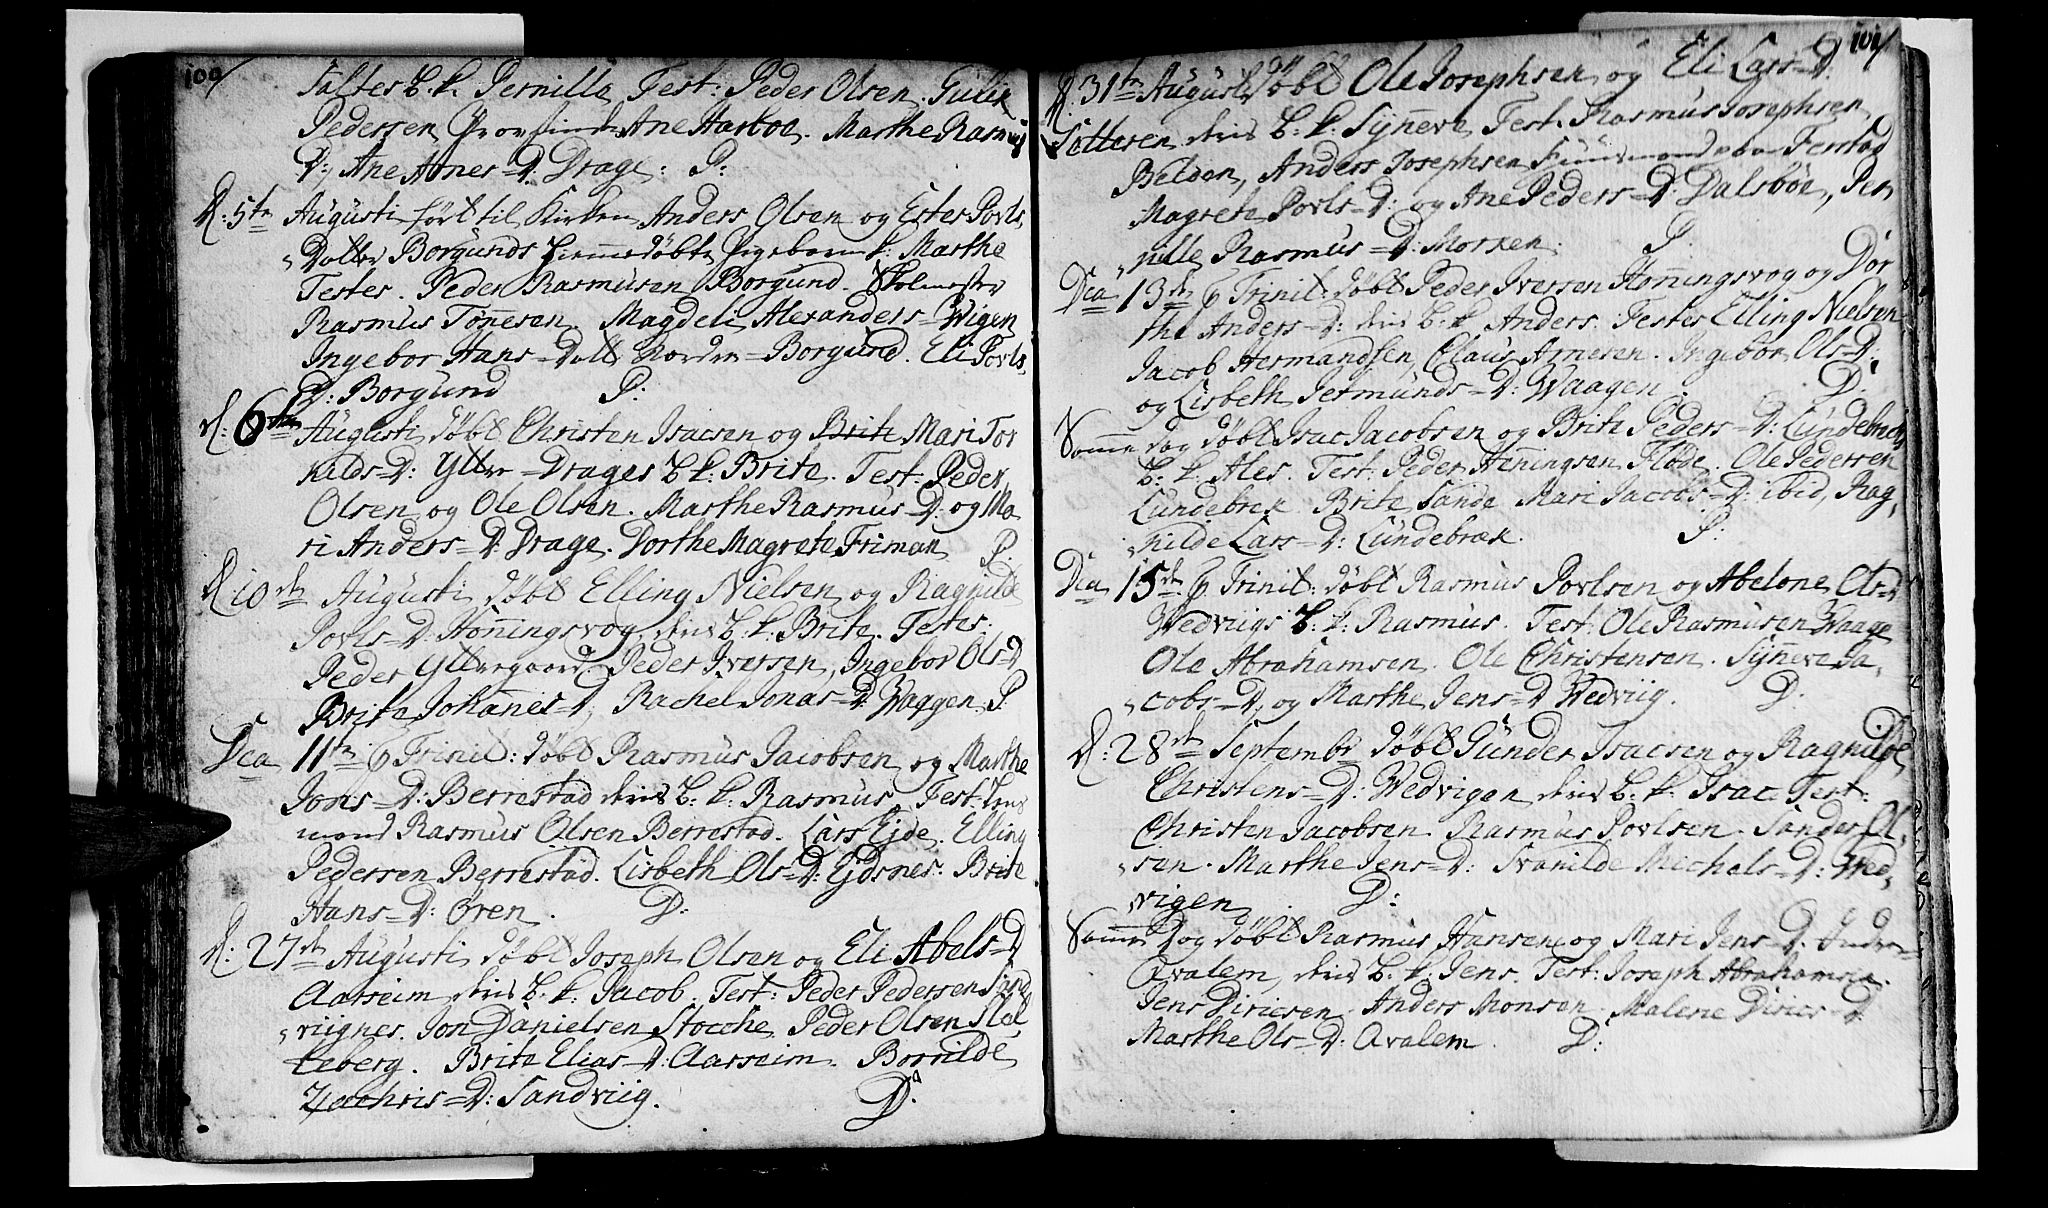 100/
Saltes B. k. Pernille Test: Peder Olsen. Gulik
Pedersen Ane Harboe. Marthe Rasmus
D: Ane Abner=D: Drage: P:
d: 5te Augusti fört til Kirken Anders Olsen og Ester Povls
Dotter Borgunds Hiemedöbte Pigebarn k: Marthe
Testes. Peder Rasmusen Borgund. Skolmester
Rasmus Tönesen. Magdeli Alexanders=Wigen
Ingebor Hans=Dott Borgund. Eli Povls
D: Borgund P:
d: 6te Augusti döbt Christen Isacsen og Brite Mari Tor
kilds=D: Ytter=Drages B. k: Brite. Test: Peder
Olsen og Ole Olsen. Marthe Rasmus=D: og Ma
ri Anders=D: Drage. Dorthe Magrete Friman P.
d: 10de Augusti döbt Elling Nielsen og Ragnilde
Povls=D: Hönningsvog, deris B. k: Brite. Testes:
Peder Yttergaard, Peder Iversen, Ingebor Ols=D
Brite Johannes=D, Rachel Jonas=D: Waagen. P.
Dca 11te p Trinit: döbt Rasmus Jacobsen og Marthe
Jons=D: Berrestad deris B. k: Rasmus. Test:
mand Rasmus Olsen Berrestad. Lars Ejde. Elling
Pedersen Berrestad. Lisbeth Ols=D: Ejdsnes: Brite
Hans=D: Ören. D:
d: 27de Augusti döbt Joseph Olsen og Eli Abels=D
Aarseim deris B. k. Jacob. Test: Peder Pedersen Sand
viignes. Jon Danielsen Stoche, Peder Olsen Slot
teberg. Brite Elias=D: Aarseim. Borrilde
Zachris=D: Sandviig. D:
101/
d. 31te Augusti döbt Ole Josephsen og Eli Lars=D:
Setteren deris B. k. Synneve, Test. Rasmus Josephsen
Belden, Anders Josephsen paa Ferstad
Magrete Povls=D: og Ane Peders=D: Dalsböe, Per
nille Rasmus=D: Morken. P.
Dca 13de p Trinit: döbt Peder Iversen Honningsvog og Dor
the Anders=D: deris B. k. Anders. Testes Elling Nielsen
Jacob Hermandsen, Claus Arnesen. Ingebor Ols=D.
og Lisbeth Jetmunds=D: Waagen. D:
Samme dag döbt Isac Jacobsen og Brite Peders=D: Lundebrechs
B. k. Ales. Test: Peder Henningsen Flöde. Ole Pedersen
Lundebrek Brite Sande Mari Jacobs=D: ibid, Rag
nilde Lars=D: Lundebræk. P.
Dca 15de p Trinit: döbt Rasmus Povlsen og Abelone Ols=D
Wedviigs B. k: Rasmus. Test: Ole Rasmusen Waage
Ole Abrahamsen. Ole Christensen. Synneve Ja
cobs=D, og Marthe Jens=D Wedviig. D.
d: 28de Septembr döbt Gunder Isacsen og Ragnilde
Christens=D: Wedvigen deris B. k. Isac Test:
Christen Jacobsen. Rasmus Povlsen. Sander Ol
sen. Marthe Jens=D: Svanilde Michels=D: Wed
vigen. D:
Samme Dag döbt Rasmus Hansen og Mari Jens=D: Inder=
Qvalem, deris B. k. Jens. Test: Joseph Abrahamsen.
Jens Diricsen. Anders Monsen. Malene Dirics=D
Marthe Ols=D: Qvalem. D: